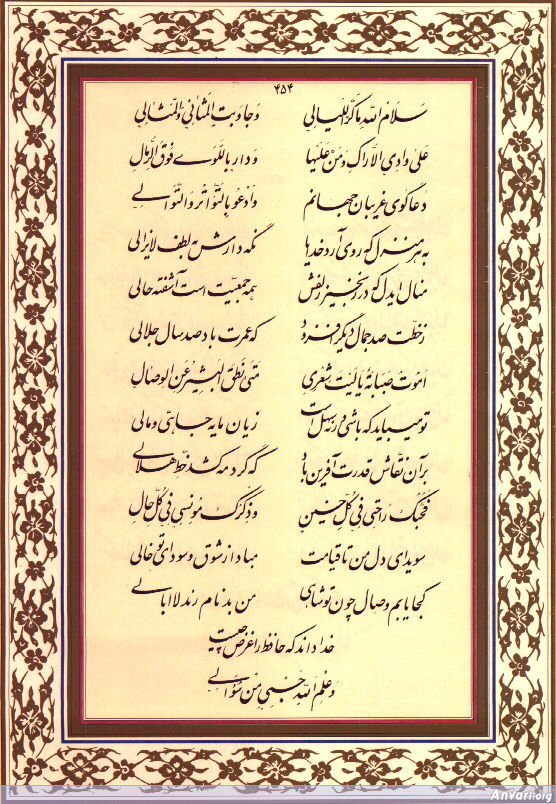 ۴۵۴
سَلامُ اللهِ ما کَرَّ اللَّیالِی وَجاوَبتِ المَثانِی وَالمَثالِی
عَلی وادِی الاَراکِ وَمَن عَلَیها وَدارٍ بِاللِّوی فَوقَ الرِّمالِ
دعاگوی غریبان جهانم وَادعُو بِالتَّواتُرِ وَالتَّوالی
به هر منزل که روی آرد خدایا نگه دارش به لطف لایزالی
منال ایدل که در زنجیر زلفش همه جمعیت است آشفته حالی
زخطّت صد جمال دیگر افزود که عمرت باد صد سال جلالی
اَمُوتُ صَبابَةً یا لَیتَ شِعرِی مَتی نَطَقَ البَشیرُ عَنِ الوِصالِ
تو میباید که باشی ورنه سهل است زیان مایه جاهی و مالی
بر آن نقّاش قدرت آفرین باد که گرد مه کشد خطّ هلالی
فَحُبُّکَ راحَتی فِی کُلِّ حِینٍ وَ ذِکرُکَ مُونِسی فِی کُلِّ حالِ
سویدای دل من تا قیامت مباد از شوق و سودای تو خالی
کجا یابم وصال چون تو شاهی من بدنام رند لاابالی
خدا داند که حافظ را غرض چیست
وَ عِلمُ اللهِ حَسبِی مِن سُؤالی
Anvari.org